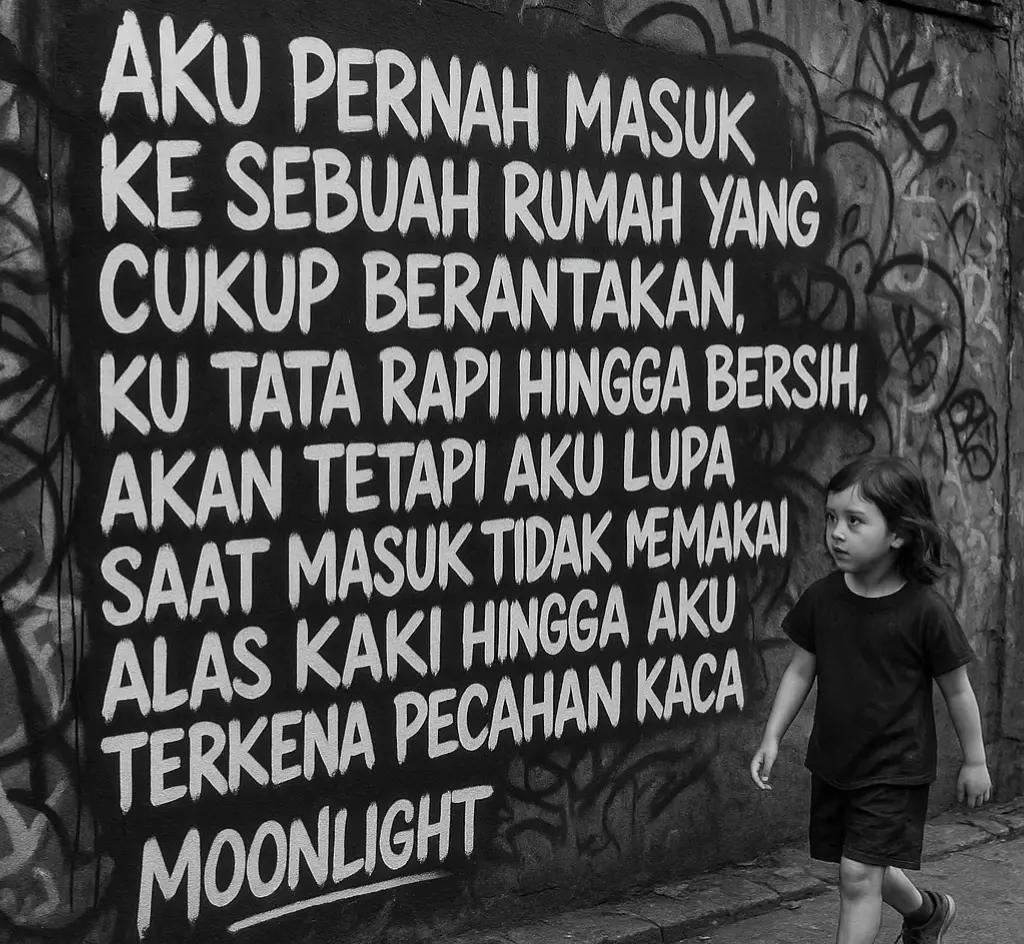 AKU PERNAH MASUK
KE SEBUAH RUMAH YANG
CUKUP BERANTAKAN,
KU TATA RAPI HINGGA BERSIH,
AKAN TETAPI AKU LUPA
SAAT MASUK TIDAK MEMAKAI
ALAS KAKI HINGGA AKU
TERKENA PECAHAN KACA
MOONLIGHT